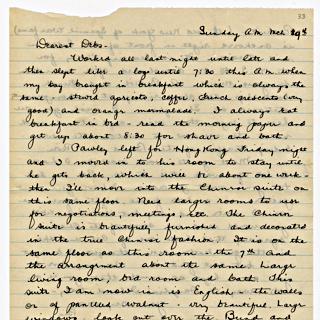 33
Sunday A.M. Mch 29th
Dearest Debs -
Worked all last night until late and
then slept like a log until 7:30 this A.M. when
my boy brought in breakfast which is always the
same - stewd apricots, coffee, french crescents (very
good) and orange marmalade. I always eat
breakfast in bed - read the morning paper and
get up about 8:30 for shave and bath.
Pawley left for Hong Kong Friday night
and I moved in to his room to stay until
he gets back, which will be about one week -
then I'll move into the Chinese suite on
this same floor. Need larger rooms to use
for negotiations, meetings, etc. The Chinese
suite is beautifully furnished and decorated
in the true Chinese fashion. It is on the
same floor as this room - the 7th and
the arrangement about the same. Large
living room, bed room and bath. This
suite I am now in is English - the walls
are of panelled walnut - very beautiful. Large
windows look out over the Bund and